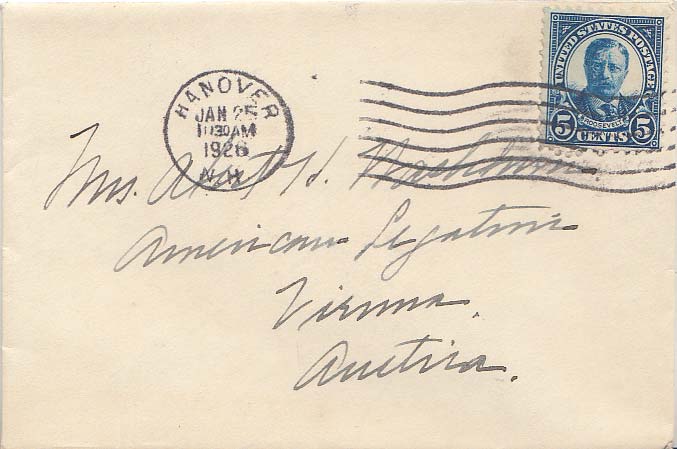 UNITED STATES POSTAGE
ROOSEVELT
5 CENTS 5
HANOVER
JAN 25
10 30 AM
1926
N.H.
Mrs. Albert H. Washburn.
American Legation
Vienna.
Austria.